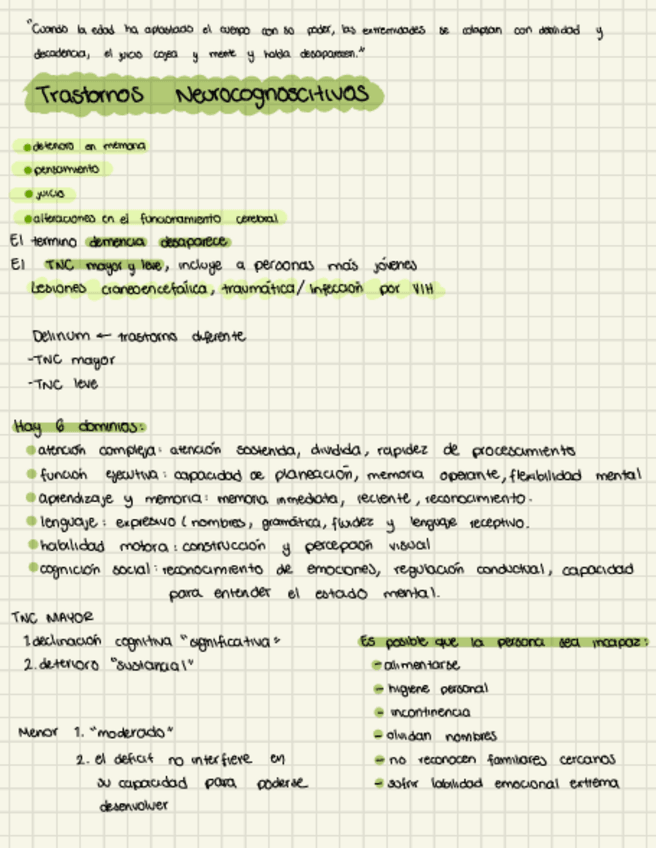 "Cuando la edad ha aplastado el cuerpo con su poder, las extremidades se colapsan con debilidad y
decadencia, el juicio cojea y mente y habla desaparecen."
Trastornos Neurocognoscitivos
• deterioro en memoria
• pensamiento
• juicio
• alteraciones en el funcionamiento cerebral
El termino demencia desaparece
El TNC mayor y leve, incluye a personas más jóvenes
Lesiones craneoencefálica, traumática/ infección por VIH
Delirium ← trastorno diferente
-TNC mayor
-TNC leve
Hay 6 dominios:
• atención compleja: atención sostenida, dividida, rapidez de procesamiento
• función ejecutiva: capacidad de planeación, memoria operante, flexibilidad mental
• aprendizaje y memoria: memoria inmediata, reciente, reconocimiento.
• lenguaje: expresivo (nombres, gramática, fluidez y lenguaje receptivo.
• habilidad motora: construcción y percepción visual
• cognición social: reconocimiento de emociones, regulación conductual, capacidad
para entender el estado mental.
TNC MAYOR
1. declinación cognitiva "significativa"
2. deterioro "sustancial"
Menor 1. "moderado"
2. el deficit no interfiere en
su capacidad para poderse
desenvolver
Es posible que la persona sea incapaz:
- alimentarse
- higiene personal
- incontinencia
- olvidan nombres
- no reconocen familiares cercanos
- sufrir labilidad emocional extrema